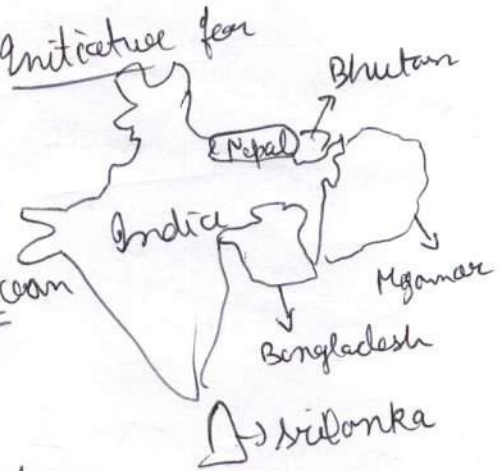 Initiative for
Bhutan
Nepal
India
Myanmar
Bangladesh
Srilanka